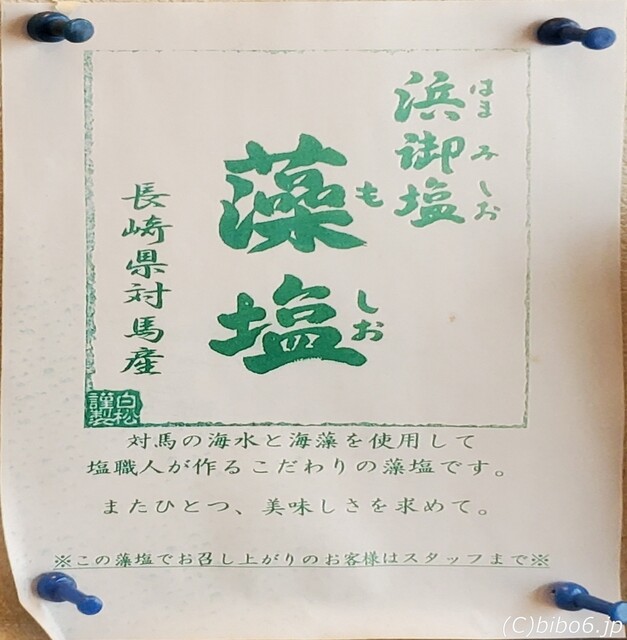 浜御塩
はま み しお
藻塩
も しお
長崎県対馬産
白松
謹製
対馬の海水と海藻を使用して
塩職人が作るこだわりの藻塩です。
またひとつ、美味しさを求めて。
※この藻塩でお召し上がりのお客様はスタッフまで※
(C)bibo6.jp